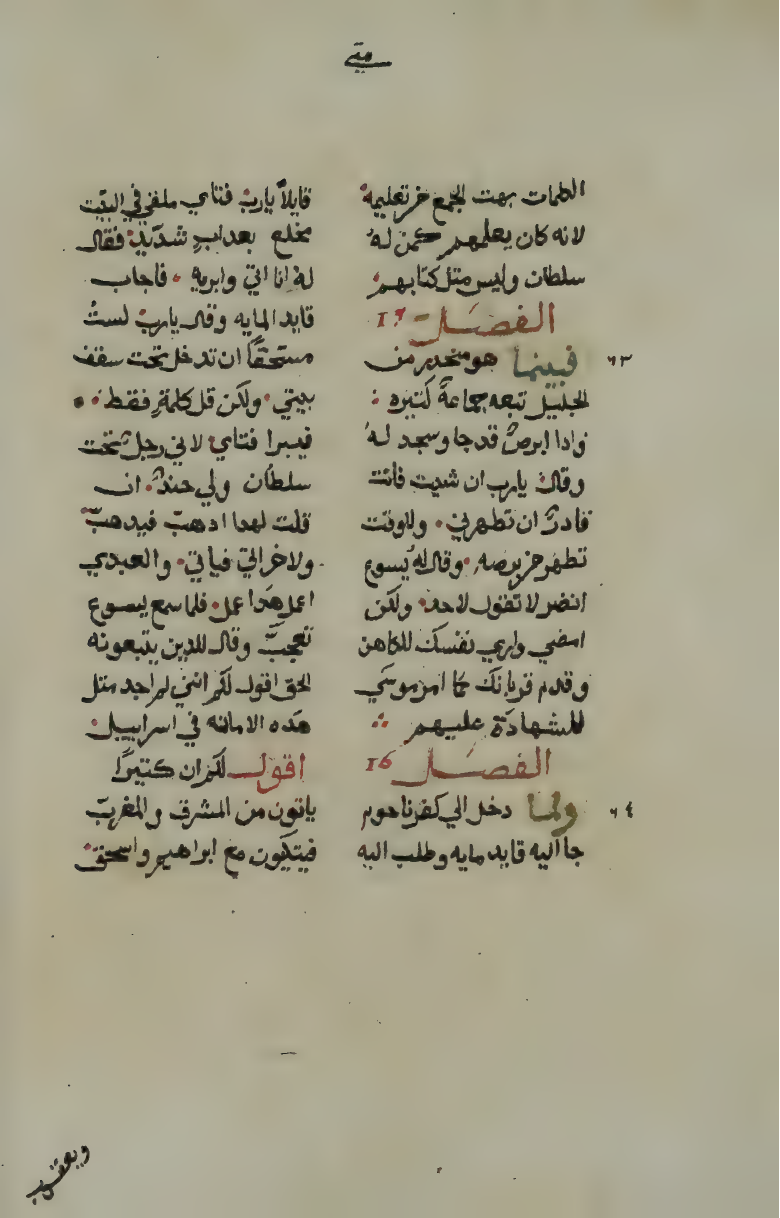 متي
الكلمات بهت الجمع من تعليمه
لانه كان يعلمهم كمن له
سلطان وليس مثل كتابهم
الفصل
٦٣ فبينما هو منحدر من
الجليل تبعه جماعةً كتيره
وادا ابرصٌ قد جا وسجد له
وقال يارب ان شيت فانت
قادرٌ ان تطهرني وللوقت
تطهر من برصه وقال له يسوع
انضر لا تقول لاحد ولكن
امضي واري نفسك للكاهن
وقدم قربانك كما امر موسي
للشهادة عليهم
الفصل
٦٤ ولما دخل الي كفرناحوم
جا اليه قايد مايه وطلب اليه
قايلاً يارب فتاي ملقي في البيت
مخلع بعدابٍ شديدٍ فقال
له انا اتي وابريه فاجاب
قايد المايه وقال يارب لستُ
مستحقاً ان تدخل تحت سقف
بيتي ولكن قل كلمة فقط
فيبرا فتاي لاني رجل تحت
سلطان ولي جند ان
قلت لهدا ادهب فيدهب
ولاخر اتي فياتي والعبدي
اعمل هدا عمل فلما سمع يسوع
تعجب وقال للدين يتبعونه
الحق اقول لكم انني لم اجد متل
هده الامانه في اسراييل
اقول لكم ان كتيرًا
ياتون من المشرق والمغرب
فيتكون مع ابراهيم واسحق
ويعقوب